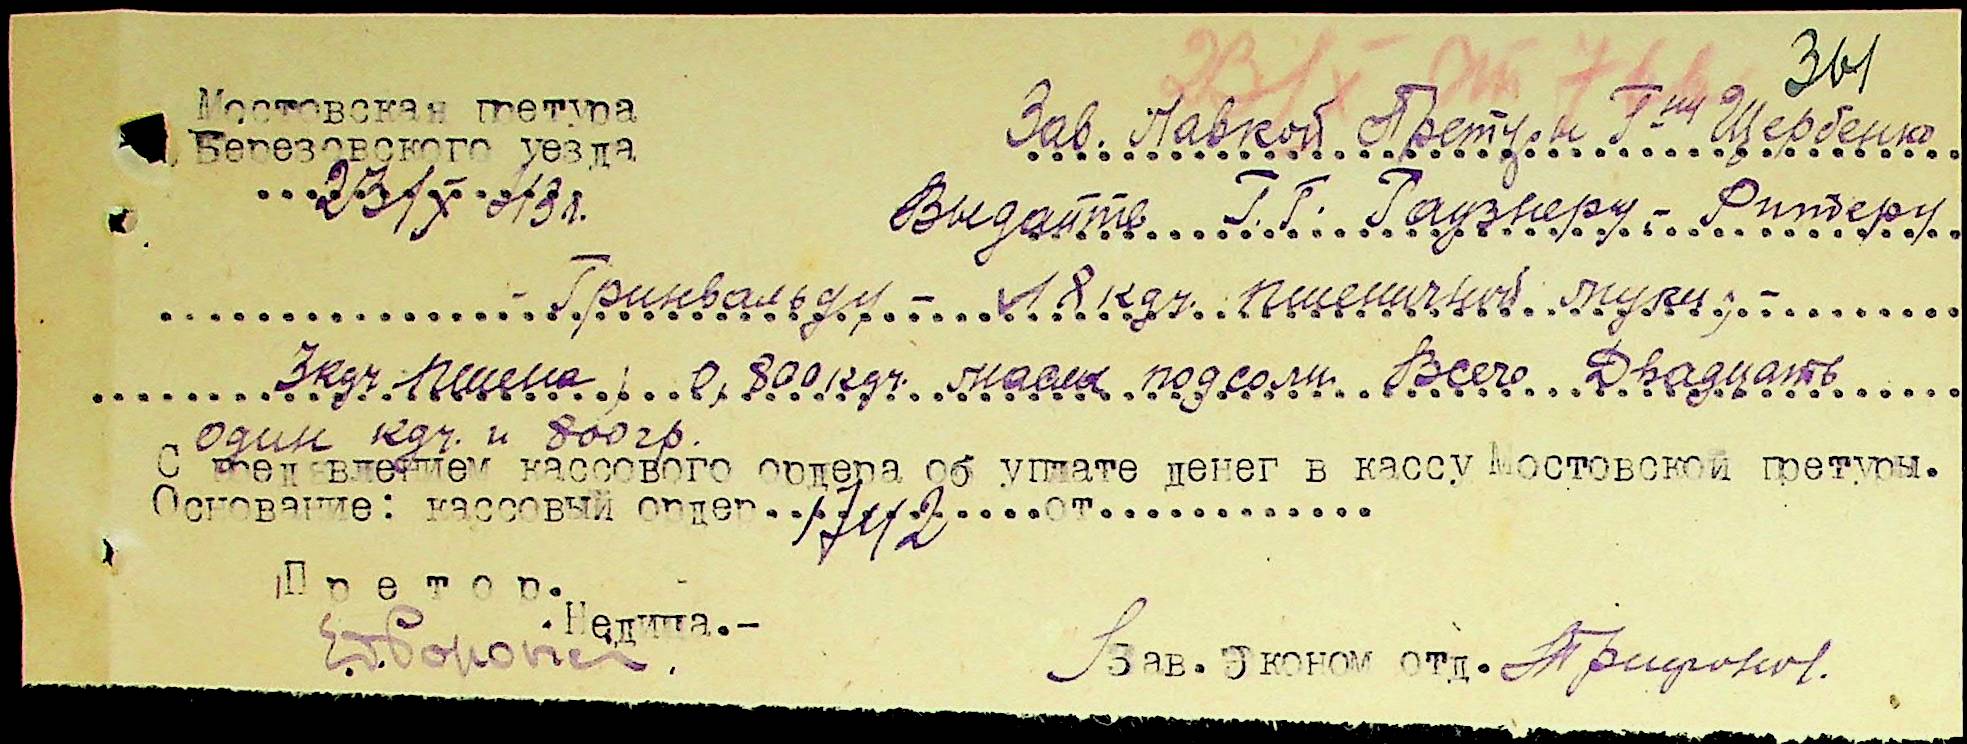 361
Мостовская претура
Березовского уезда
23/X 43 г.
Зав. Лавкой Претуры Г-ну Щербенко
Выдайте Г.Г. Гаузнеру - Ритеру
- Гринвальду - 18 кгр. пшеничной муки; -
3 кгр пшена; 0,800 кгр. масла подсолн. Всего Двадцать
один кгр. и 800 гр.
С предявлением кассового ордера об уплате денег в кассу Мостовской претуры.
Основание: кассовый ордер 1742 от
Претор.
Недица.-
Зав. Эконом отд. Трифонов.